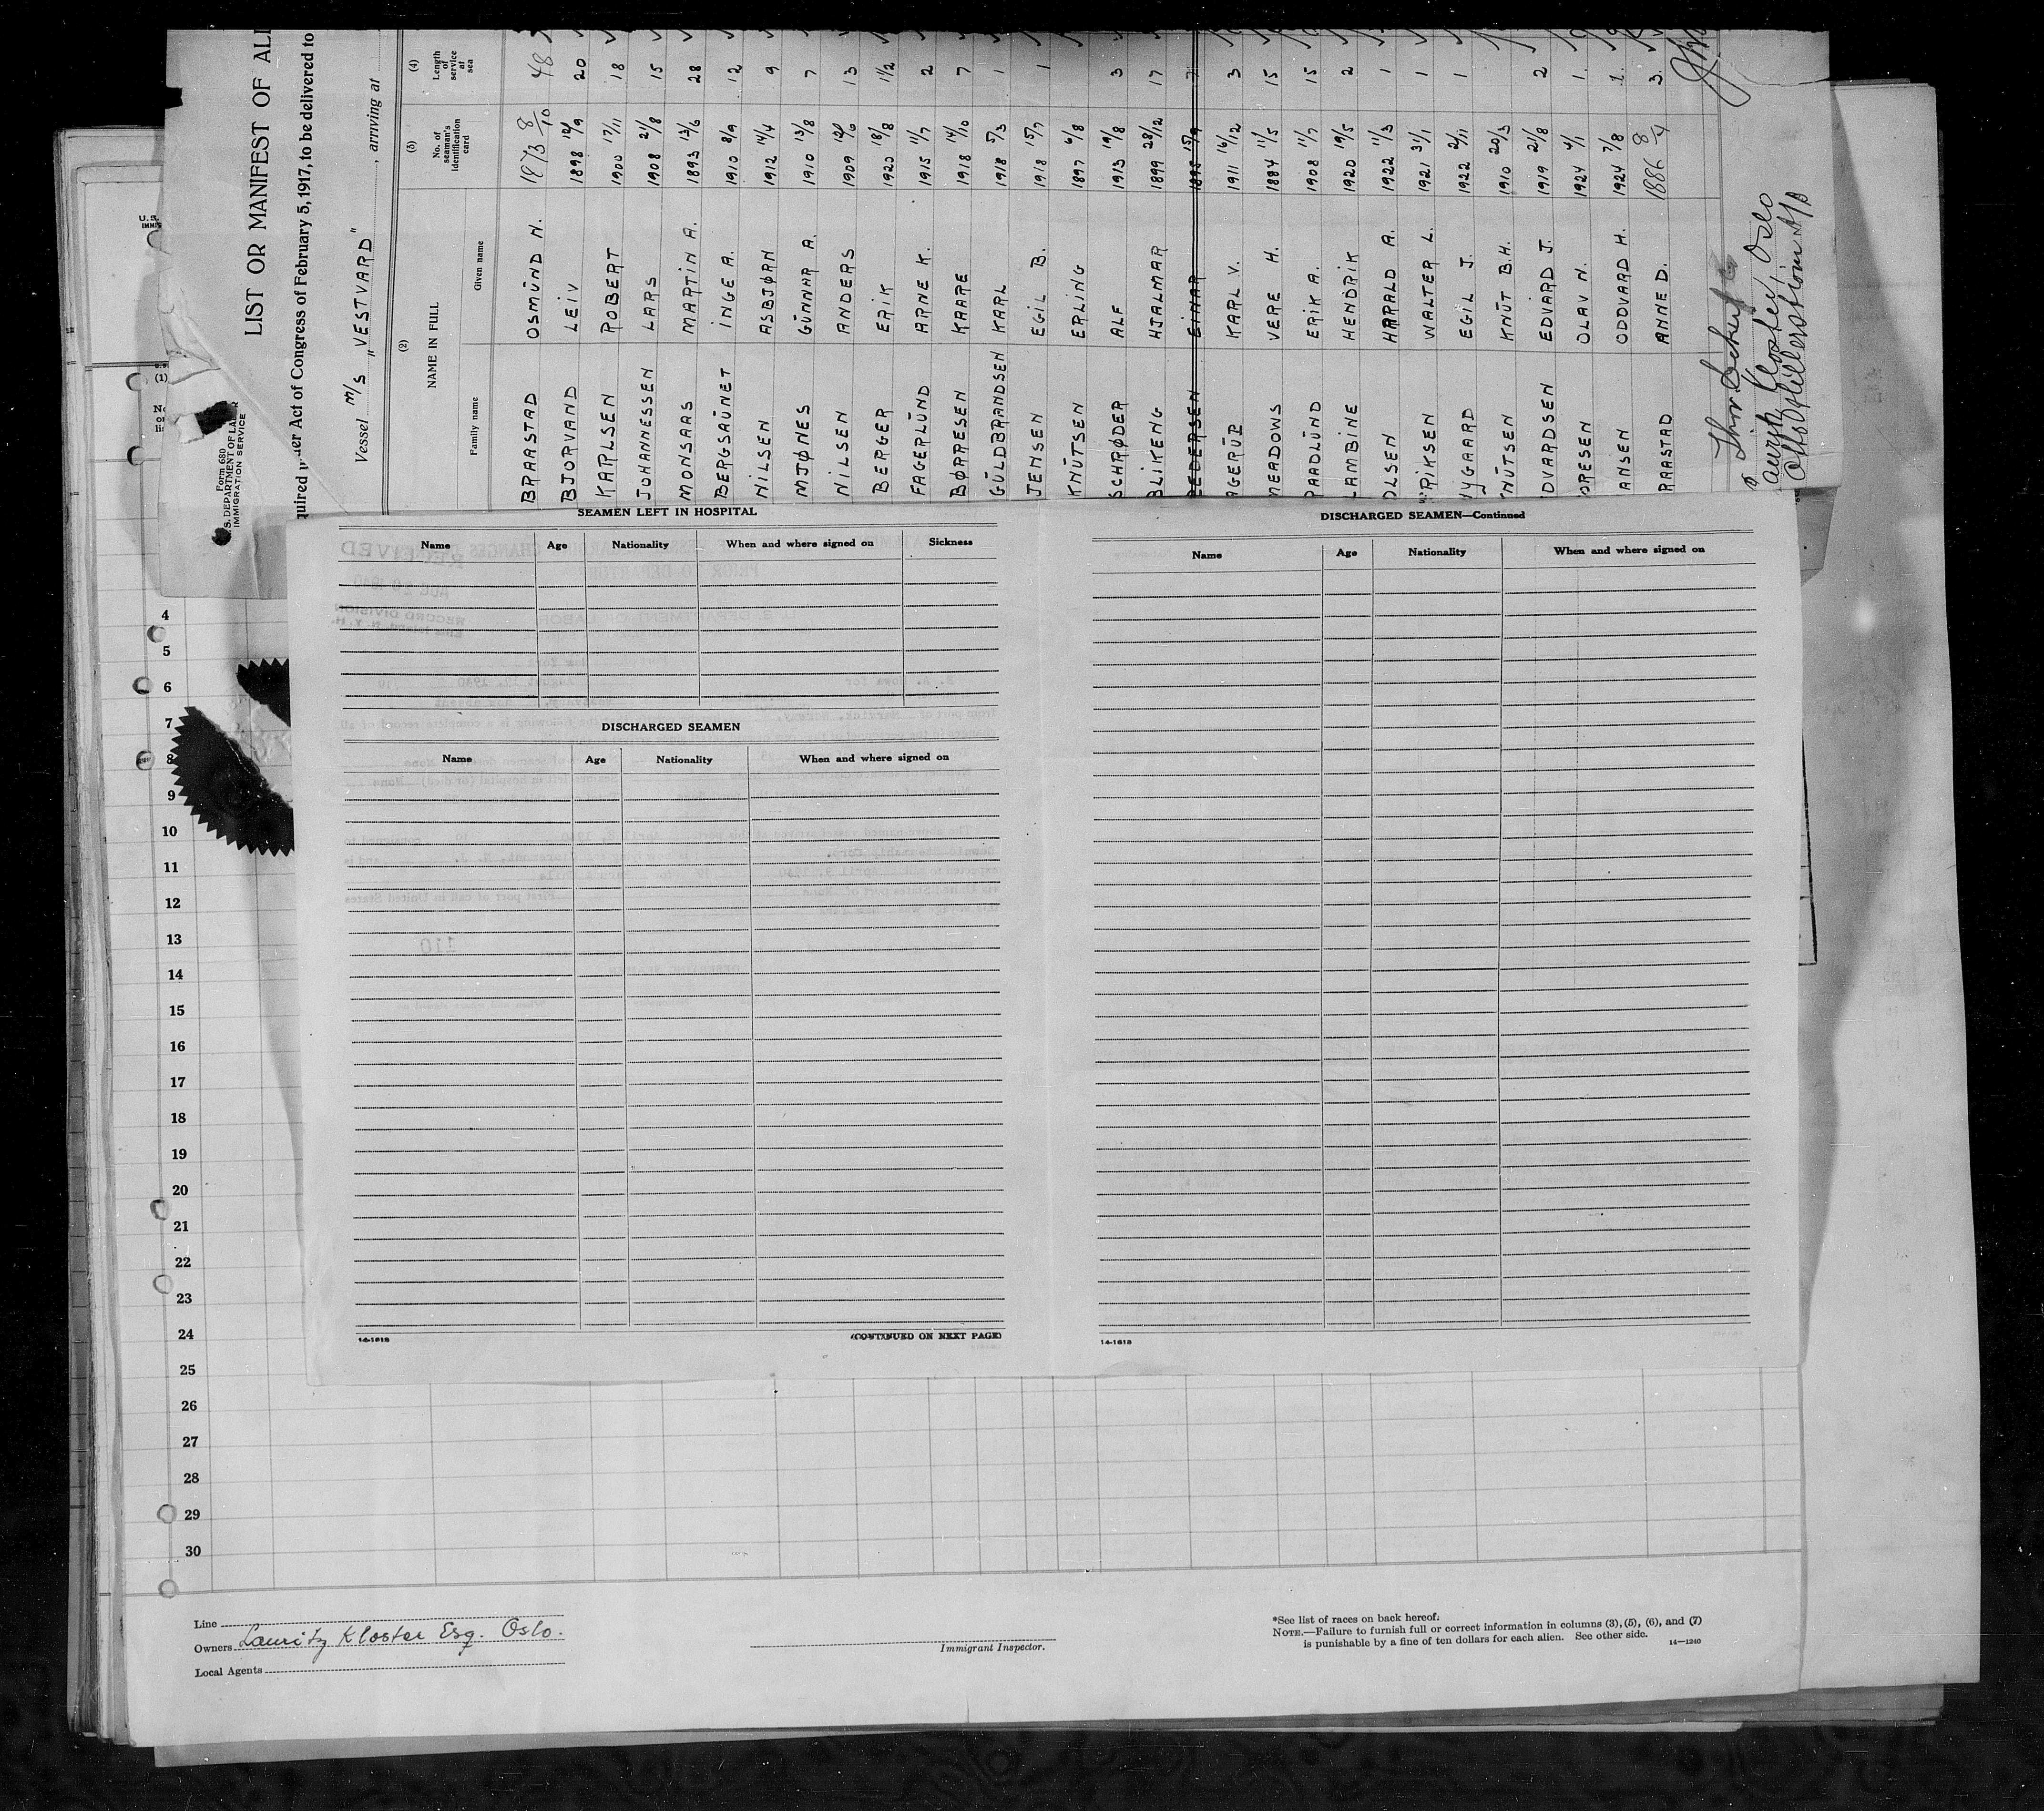 LIST OR MANIFEST OF ALI
quired under Act of Congress of February 5, 1917, to be delivered to
Vessel M/S „VESTVARD" , arriving at
Form 680
S. DEPARTMENT OF LABOR
IMMIGRATION SERVICE
(2) (3) (4)
NAME IN FULL No. of seaman's identification card Length of service at sea
Family name Given name
BRAASTAD OSMÜND N. 1873 8/10 48
BJORVAND LEIV 1898 12/9 20
KARLSEN ROBERT 1900 17/11 18
JOHANESSEN LARS 1908 21/8 15
MONSAAS MARTIN A. 1893 13/6 28
BERGSAÜNET INGE A. 1910 8/9 12
NILSEN ASBJØRN 1912 14/4 9
MJØNES GÜNNAR A. 1910 13/8 7
NILSEN ANDERS 1909 13
BERGER ERIK 1920 18/8 1 1/2
FAGERLÜND ARNE K. 1915 11/7 2
BØRRESEN KAARE 1918 14/10 7
GÜLDBRANDSEN KARL 1918 5/3 1
JENSEN EGIL B. 1918 15/7 1
KNÜTSEN ERLING 1897 6/8
SCHRØDER ALF 1913 19/8 3
BLIKENG HJALMAR 1899 28/12 17
PEDERSEN EINAR 1895 15/9 7
AGERÜP KARL V. 1911 16/12 3
MEADOWS VERE H. 1884 11/5 15
PAADLÜND ERIK A. 1908 11/7 15
LAMBINE HENDRIK 1920 19/5 2
OLSEN HARALD A. 1922 11/3 1
RIKSEN WALTER L. 1921 31/1 1
NYGAARD EGIL J. 1922 2/11 1
NÜTSEN KNÜT B.H. 1910 20/3
DVARDSEN EDVARD J. 1919 21/8 2
ORESEN OLAV N. 1924 4/1 1
ANSEN ODDVARD H. 1924 7/8 1
RAASTAD ANNE D. 1886 8/4 3
auritz Kloster, Oslo
SEAMEN LEFT IN HOSPITAL
Name Age Nationality When and where signed on Sickness
DISCHARGED SEAMEN
Name Age Nationality When and where signed on
14-1618 (CONTINUED ON NEXT PAGE)
DISCHARGED SEAMEN—Continued
Name Age Nationality When and where signed on
14-1618
(1)
4
5
6
7
8
9
10
11
12
13
14
15
16
17
18
19
20
21
22
23
24
25
26
27
28
29
30
Line
Owners Lauritz Kloster Esq. Oslo.
Local Agents
Immigrant Inspector.
*See list of races on back hereof.
NOTE.—Failure to furnish full or correct information in columns (3), (5), (6), and (7)
is punishable by a fine of ten dollars for each alien. See other side. 14—1240